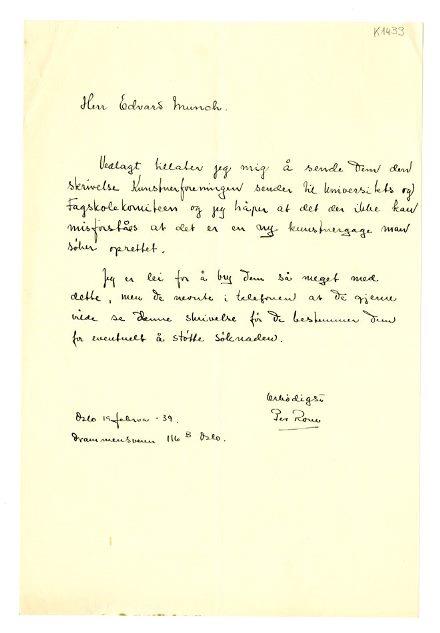 K1433
Herr Edvard Munch.
Vedlagt tillater jeg mig å sende Dem den
skrivelse Kunstnerforeningen sender til Universitets og
Fagskolekomiteen og jeg håper at det der ikke kan
misforståes at det er en ny kunstnergage man
söker oprettet.
Jeg er lei for å bry Dem så meget med
dette, men De nevnte i telefonen at De gjerne
vilde se denne skrivelse för De bestemmer Dem
for eventuelt å stötte söknaden.
Erbödigst
Per Rom
Oslo 19 februar - 39.
Drammensveien 116 B Oslo.